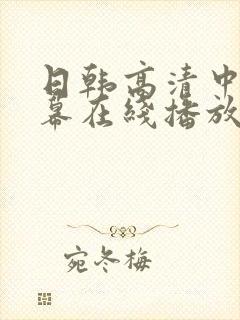 日韩高清中
幕在线播放
宛冬梅